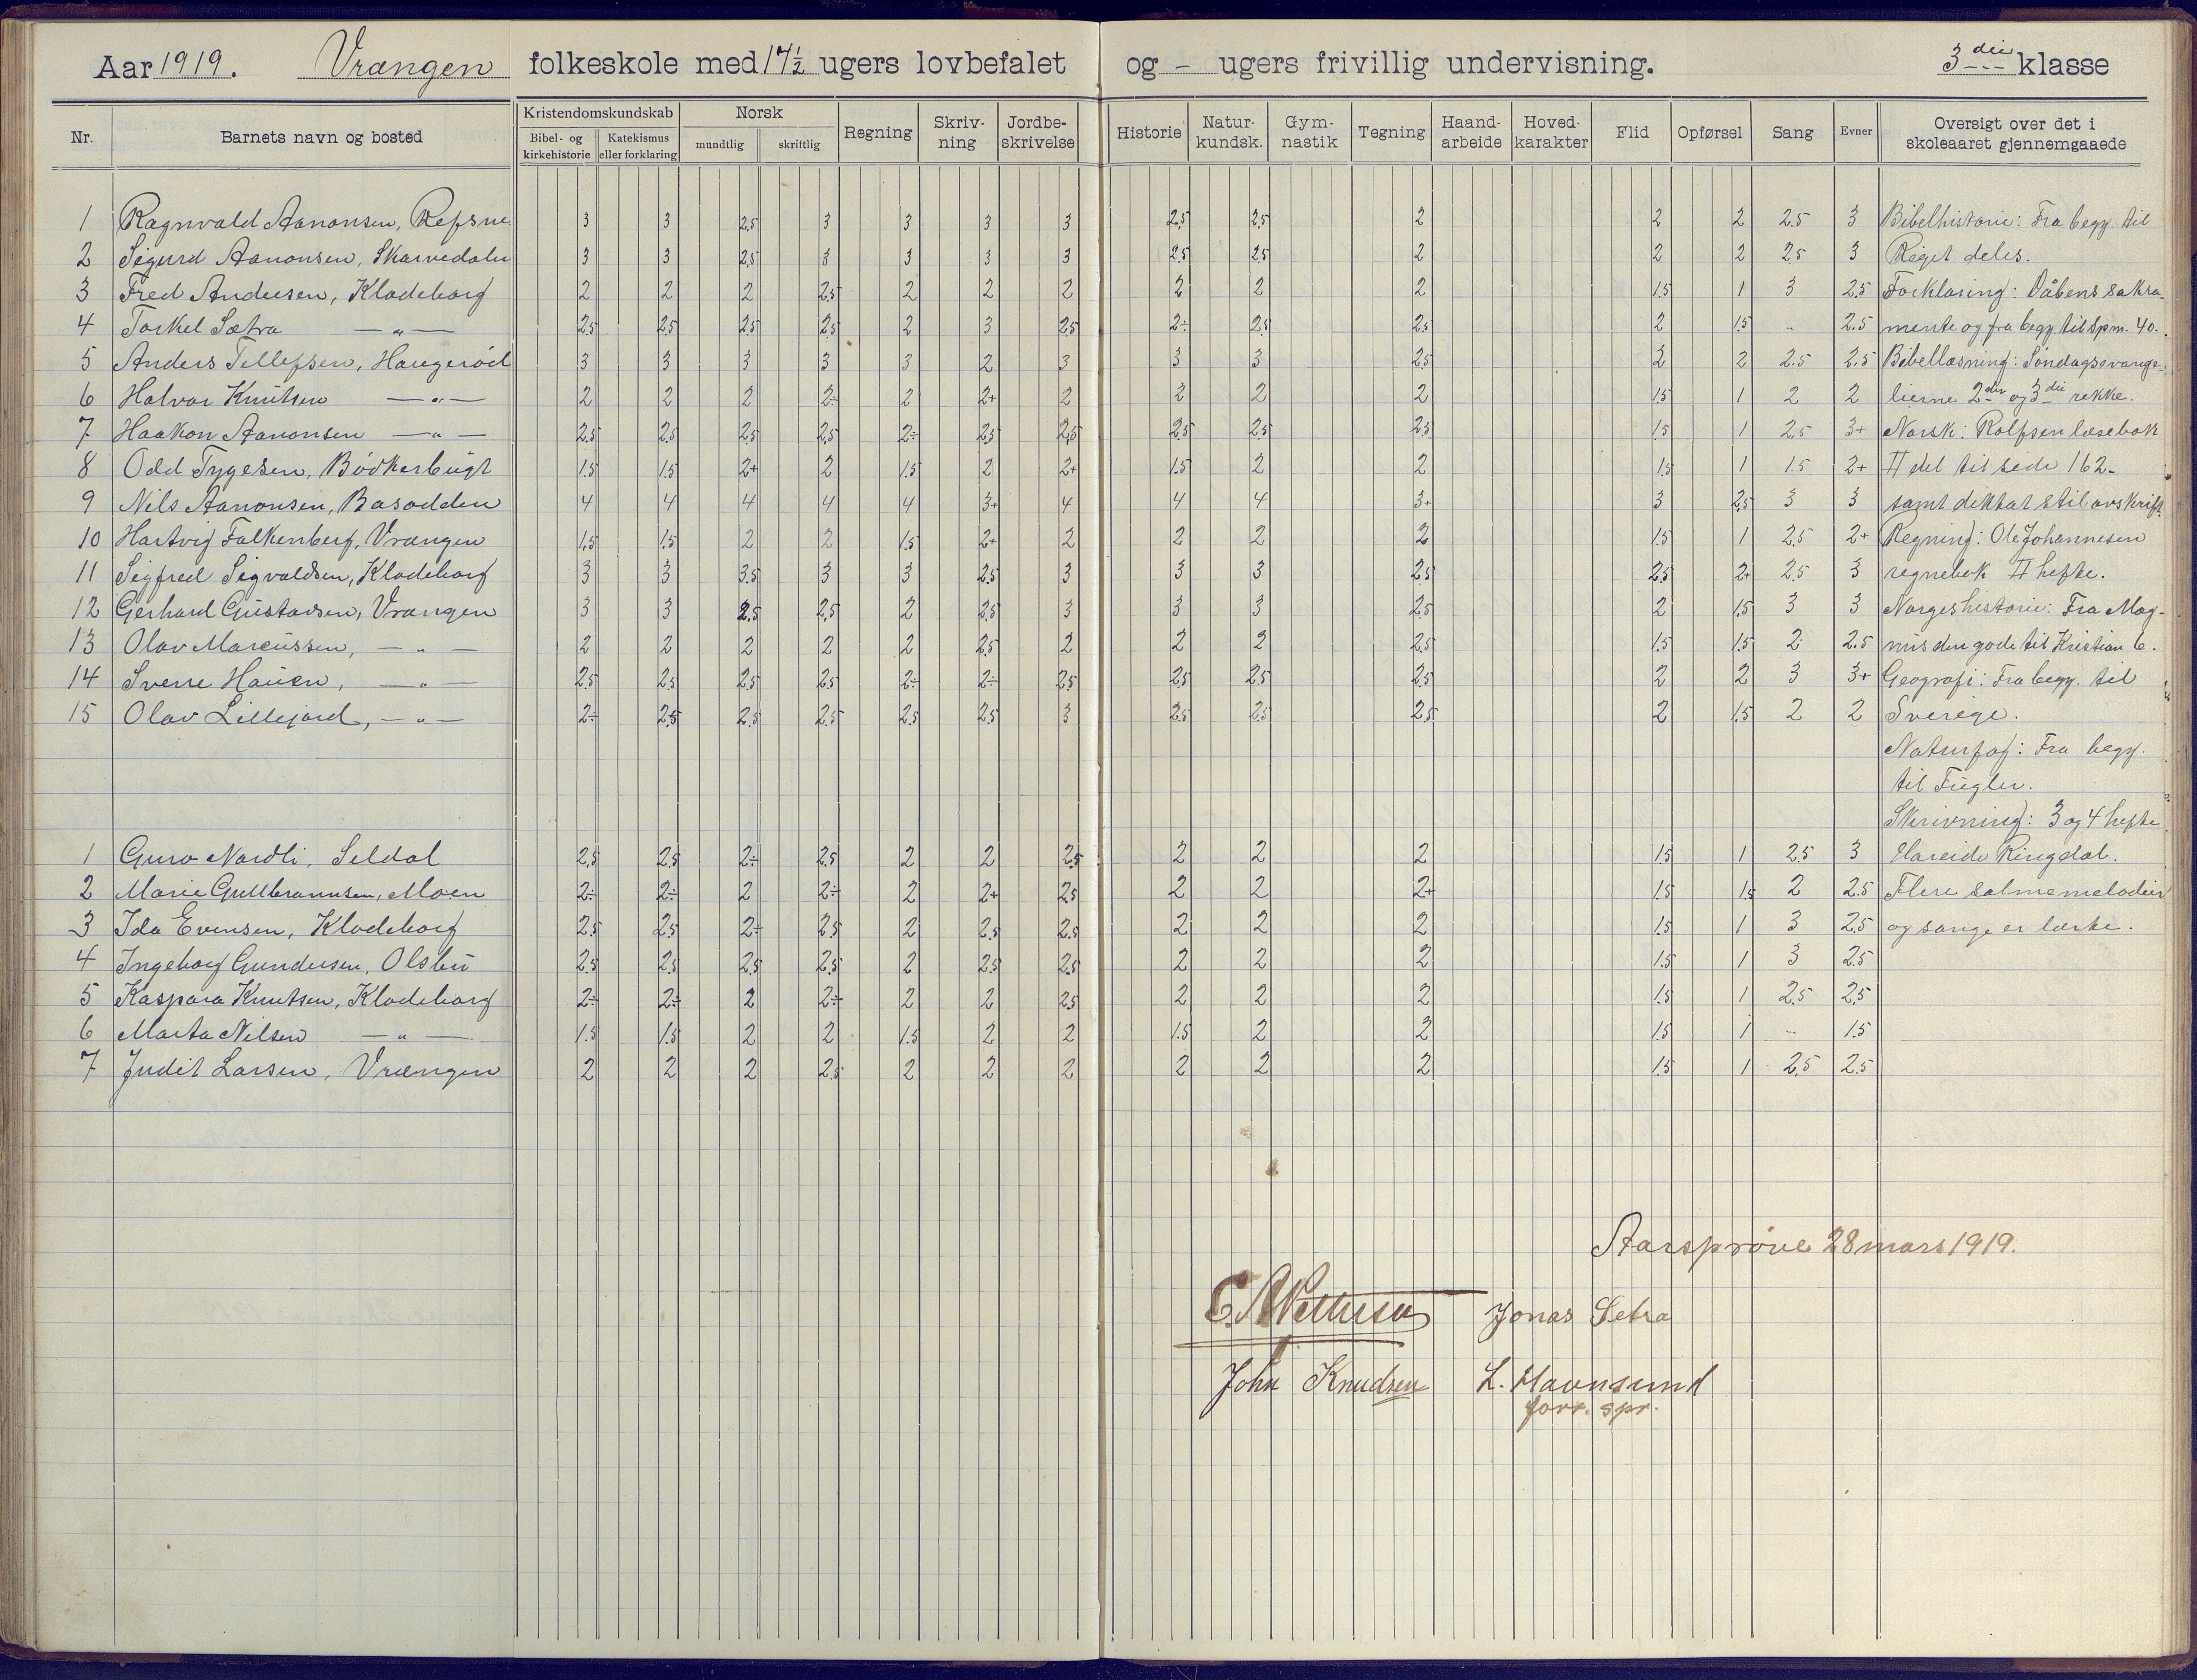 Aar 1919. Vrængen folkeskole med 17½ ugers lovbefalet og - ugers frivillig undervisning. 3die klasse
Nr. Barnets navn og bosted Kristendomskundskab Norsk Regning Skriv-ning Jordbe-skrivelse Historie Natur-kundsk. Gym-nastik Tegning Haand-arbeide Hoved-karakter Flid Opførsel Sang Evner Oversigt over det i skoleaaret gjennemgaaede
Bibel- og kirkehistorie Katekismus eller forklaring mundtlig skriftlig
1 Ragnvald Aanonsen, Refsne 3 3 2,5 3 3 3 3 2,5 2,5 2 2 2 2.5 3 Bibelhistorie: Fra begy. til
2 Sigurd Aanonsen, Skarvedalen 3 3 2,5 3 3 3 3 2.5 2.5 2 2 2 2.5 3 Riget deles.
3 Fred Andersen, Klodeborg 2 2 2 2.5 2 2 2 2 2 2 1.5 1 3 2.5 Forklaring: Dåbens sakra-
4 Torkel Sætra —„— 2.5 2.5 2.5 2.5 2 3 2.5 2÷ 2.5 2.5 2 1.5 - 2.5 mente og fra begy. til spm. 40.
5 Anders Tellefsen, Haugerød 3 3 3 3 3 2 3 3 3 2.5 2 2 2.5 2.5 Bibellæsning: Søndagsevange-
6 Halvor Knutsen —„— 2 2 2 2÷ 2 2+ 2 2 2 2 1.5 1 2 2 lierne 2den og 3die rekke.
7 Haakon Aanonsen —„— 2.5 2.5 2.5 2.5 2÷ 2.5 2.5 2.5 2.5 2.5 1.5 1 2.5 3+ Norsk: Rolfsen læsebok
8 Odd Tygesen, Bødkerbugt 1.5 1.5 2+ 2 1.5 2 2+ 1.5 2 2 1.5 1 1.5 2+ II del til side 162-
9 Nils Aanonsen, Basodden 4 4 4 4 4 3+ 4 4 4 3+ 3 2.5 3 3 samt diktat stil avskrift.
10 Hartvig Falkenberg, Vrængen 1,5 1.5 2 2 1.5 2+ 2 2 2 2 1.5 1 2.5 2+ Regning: Ole Johannesen
11 Sigfred Sigvaldsen, Klodeborg 3 3 3.5 3 3 2.5 3 3 3 2.5 2.5 2+ 2.5 3 regnebok II hefte.
12 Gerhard Gustavsen, Vrængen 3 3 2.5 2.5 2 2.5 3 3 3 2.5 2 1.5 3 3 Norgeshistorie: Fra Mag-
13 Olav Marcussen, —„— 2 2 2 2 2 2.5 2 2 2 2.5 1.5 1.5 2 2.5 nus den gode til Kristian 6.
14 Sverre Hauen, —„— 2.5 2.5 2.5 2.5 2÷ 2÷ 2.5 2.5 2.5 2.5 2 2 3 3+ Geografi: Fra begy. til
15 Olav Lillejord, —„— 2÷ 2.5 2.5 2.5 2.5 2.5 3 2.5 2.5 2.5 2 1.5 2 2 Sverige.
Naturfag: Fra begy.
til Fugler.
Skrivning: 3 og 4 hefte
1 Guro Nordli, Seldal 2.5 2.5 2÷ 2.5 2 2 2.5 2 2 2 1.5 1 2.5 3 Hareide Ringdal.
2 Marie Gullbrannsen, Moen 2÷ 2÷ 2 2÷ 2 2+ 2.5 2 2 2+ 1.5 1.5 2 2.5 Flere salmemelodier
3 Ida Evensen, Klodeborg 2.5 2.5 2÷ 2.5 2 2.5 2.5 2 2 2 1.5 1 3 2.5 og sange er lærte.
4 Ingeborg Gundersen, Olsbu 2.5 2.5 2.5 2.5 2 2.5 2.5 2 2 2 1.5 1 3 2.5
5 Kaspara Knutsen, Klodeborg 2÷ 2÷ 2 2÷ 2 2 2.5 2 2 2 1.5 1 2.5 2,5
6 Marta Nilsen —„— 1.5 1.5 2 2 1.5 2 2 1.5 2 2 1.5 1 - 1.5
7 Judit Larsen, Vrængen 2 2 2 2.5 2 2 2 2 2 2 1.5 1 2,5 2.5
Aarsprøve 28 mars 1919.
Jonas Setra
John Knudsen L. Havnsund
forr. spr.